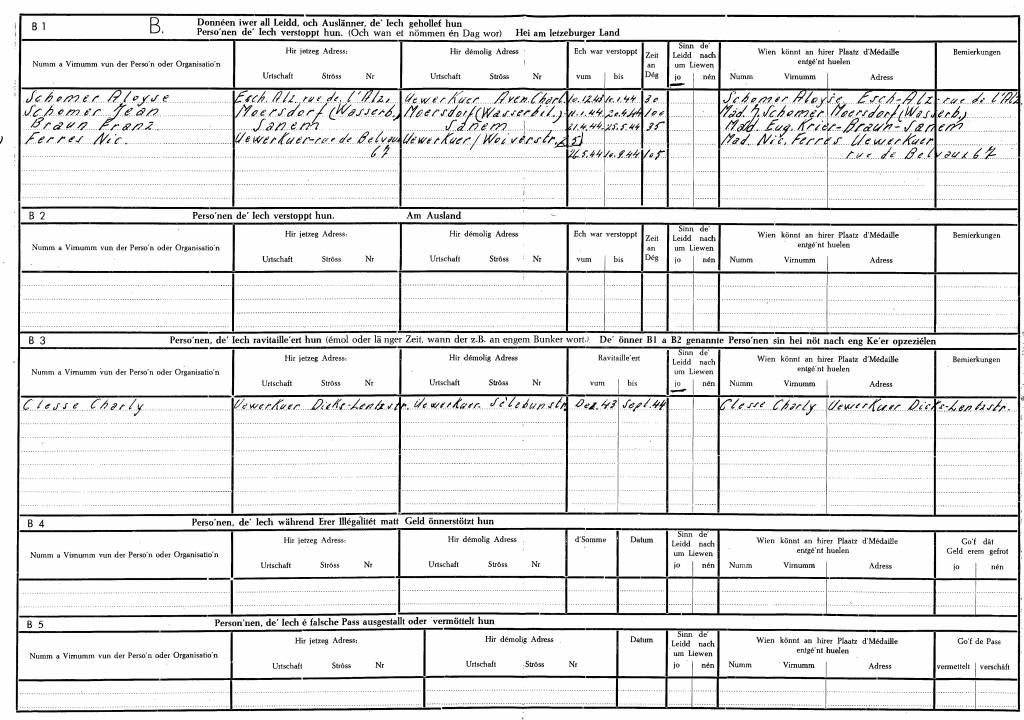 B 1 B. Donnéen iwer all Leidd, och Auslänner, de' Iech gehollef hun
Perso'nen de' Iech verstoppt hun. (Och wan et nömmen én Dag wor) Hei am letzeburger Land
Numm a Virnumm vun der Perso'n oder Organisatio'n Hir jetzeg Adress: Hir démolig Adress Ech war verstoppt Zeit an Dég Sinn de' Leidd nach um Liewen Wien könnt an hirer Plaatz d'Médaille entgé'nt huelen Bemierkungen
Urtschaft Ströss Nr Urtschaft Ströss Nr vum bis jo nén Numm Virnumm Adress
Schomer Aloyse Esch.Alz. rue de l'Alz. Uewerkuer Aven.Charl. 10.12.43 10.1.44 30 Schomer Aloyse Esch-Alz-rue de l'Alz
Schomer Jean Moersdorf (Wasserb. Moersdorf (Wasserbil.) 11.1.44 20.4.44 100 Mad. J. Schomer Moersdorf (Wasserb.)
Braun Franz Sanem Sanem 21.4.44 25.5.44 35 Mad. Eug. Krier-Braun-Sanem
Ferres Nic. Uewerkuer-rue de Belvaux Uewerkuer / Woiwerstr. 25) Mad. Nic. Ferres Uewerkuer
67 26.5.44 10.9.44 105 rue de Belvaux 67
B 2 Perso'nen de' Iech verstoppt hun. Am Ausland
Numm a Virnumm vun der Perso'n oder Organisatio'n Hir jetzeg Adress: Hir démolig Adress Ech war verstoppt Zeit an Dég Sinn de' Leidd nach um Liewen Wien könnt an hirer Plaatz d'Médaille entgé'nt huelen Bemierkungen
Urtschaft Ströss Nr Urtschaft Ströss Nr vum bis jo nén Numm Virnumm Adress
B 3 Perso'nen, de' Iech ravitaille'ert hun (émol oder lä nger Zeit, wann der z.B. an engem Bunker wort.) De' önner B1 a B2 genannte Perso'nen sin hei nöt nach eng Ke'er opzeziélen
Numm a Virnumm vun der Perso'n oder Organisatio'n Hir jetzeg Adress: Hir démolig Adress Ravitaille'ert Sinn de' Leidd nach um Liewen Wien könnt an hirer Plaatz d'Médaille entgé'nt huelen Bemierkungen
Urtschaft Ströss Nr Urtschaft Ströss Nr vum bis jo nén Numm Virnumm Adress
Clesse Charly Uewerkuer Dicks-Lentzstr. Uewerkuer. Dez.43 Sept.44 Clesse Charly Uewerkuer Dicks-Lentzstr.
B 4 Perso'nen, de' Iech während Erer Illégalitét matt Geld önnerstötzt hun
Numm a Virnumm vun der Perso'n oder Organisatio'n Hir jetzeg Adress: Hir démolig Adress d'Somme Datum Sinn de' Leidd nach um Liewen Wien könnt an hirer Plaatz d'Médaille entgé'nt huelen Go'f dät Geld erem gefrot
Urtschaft Ströss Nr Urtschaft Ströss Nr jo nén Numm Virnumm Adress jo nén
B 5 Person'nen, de' Iech é falsche Pass ausgestallt oder vermöttelt hun
Numm a Virnumm vun der Perso'n oder Organisatio'n Hir jetzeg Adress: Hir démolig Adress Datum Sinn de' Leidd nach um Liewen Wien könnt an hirer Plaatz d'Médaille entgé'nt huelen Go'f de Pass
Urtschaft Ströss Nr Urtschaft Ströss Nr jo nén Numm Virnumm Adress vermettelt verschäft